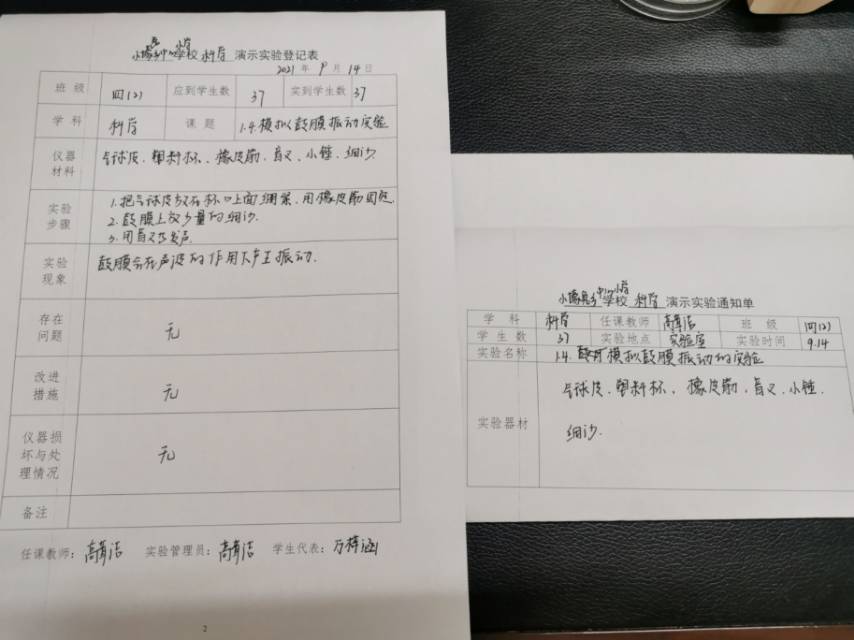 学校 科学 演示实验登记表
2021 年 9 月 14 日
班 级 四(2) 应到学生数 37 实到学生数 37
学 科 科学 课 题 1.4.模拟鼓膜振动实验
仪器材料 气球皮、塑料杯、橡皮筋、音叉、小锤、细沙
实验步骤 1.把气球皮放在杯口上面绷紧,用橡皮筋固定.
2.鼓膜上放少量的细沙.
3.用音叉发声.
实验现象 鼓膜会在声波的作用下产生振动.
存在问题 无
改进措施 无
仪器损坏与处理情况 无
备注
任课教师: 实验管理员: 学生代表:
2
学校 科学 演示实验通知单
学 科 科学 任课教师 班 级 四(2)
学 生 数 37 实验地点 实验室 实验时间 9.14
实验名称 1.4. 模拟鼓膜振动的实验
实验器材 气球皮、塑料杯、橡皮筋、音叉、小锤.
细沙.